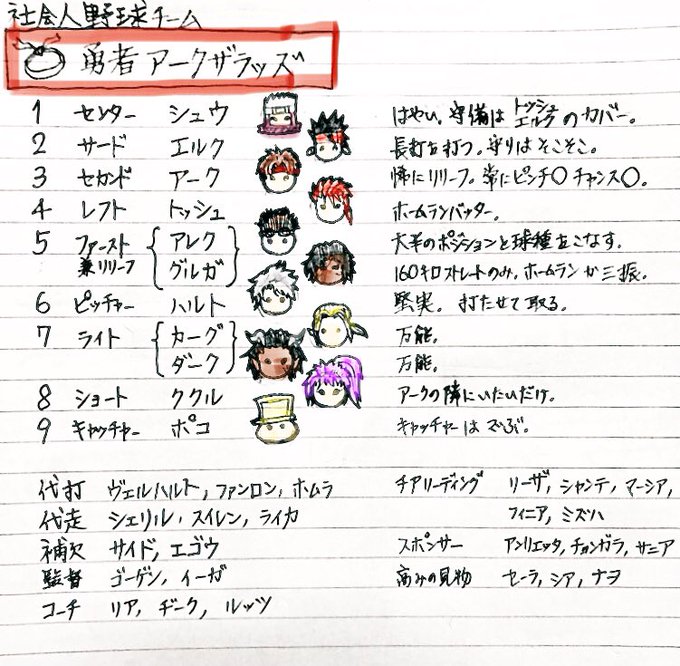 社会人野球チーム
勇者アークザラッズ
1 センター シュウ はやい。守備はトッシュ エルクのカバー。
2 サード エルク 長打を打つ。守りはそこそこ。
3 セカンド アーク 時にリリーフ。常にピンチ〇 チャンス〇。
4 レフト トッシュ ホームランバッター。
5 ファースト 兼リリーフ アレク 大半のポジションと球種をこなす。
グルガ 160キロストレートのみ。ホームランか三振。
6 ピッチャー ハルト 堅実。打たせて取る。
7 ライト カーグ 万能。
ダーク 万能。
8 ショート ククル アークの隣にいたいだけ。
9 キャッチャー ポコ キャッチャーはでぶ。
代打 ヴェルハルト, ファンロン, ホムラ
代走 シェリル, スイレン, ライカ
補欠 サイド, エゴウ
監督 ゴーゲン, イーガ
コーチ リア, ヂーク, ルッツ
チアリーディング リーザ, シャンテ, マーシア,
フィニア, ミズハ
スポンサー アンリエッタ, チョンガラ, サニア
高みの見物 セーラ, シア, ナヲ